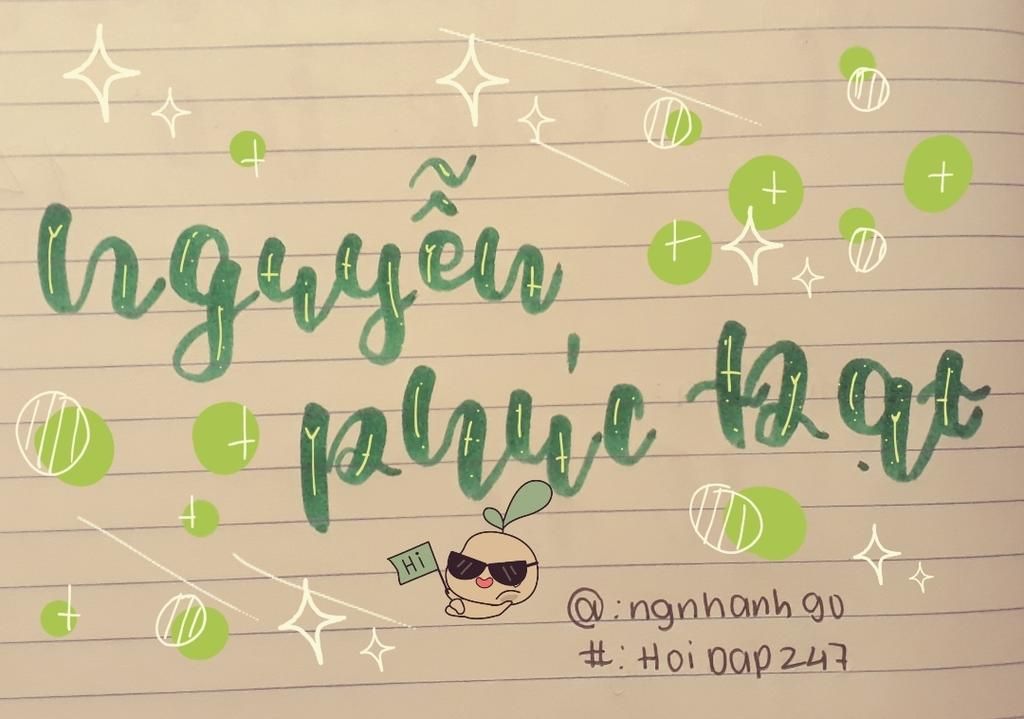 nguyễn
phúc Đạt
Hi
@:ngnhanhgo
#:Hoidap247